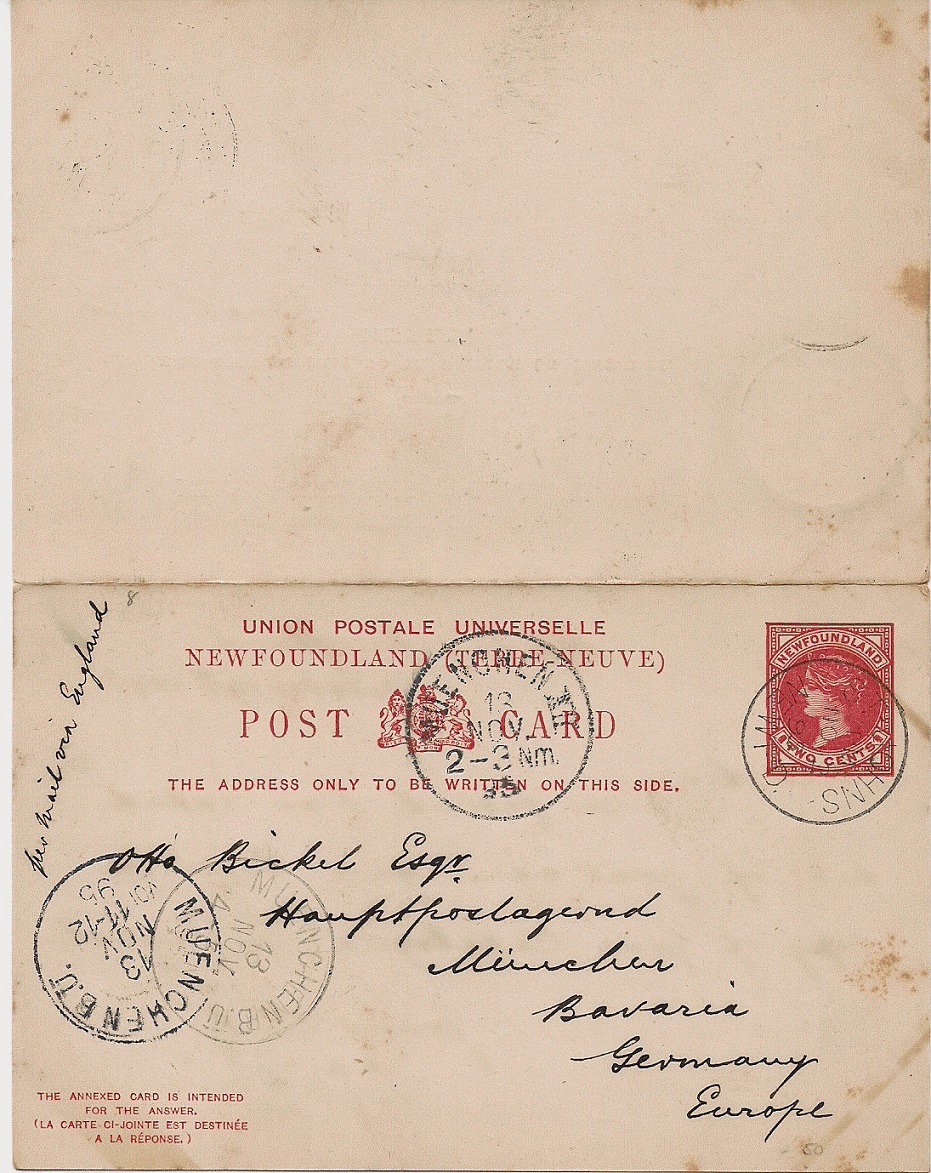 UNION POSTALE UNIVERSELLE
NEWFOUNDLAND (TERRE-NEUVE)
POST CARD
THE ADDRESS ONLY TO BE WRITTEN ON THIS SIDE.
NEWFOUNDLAND
TWO CENTS
MUENCHEN
13
NOV.
2-3 Nm.
95
per Mail via England
Otto Bickel Esqr
Hauptpostlagernd
München
Bavaria
Germany
Europe
MUENCHEN B.U.
13
NOV
11-12
95
MUENCHEN B.U.
13
NOV
THE ANNEXED CARD IS INTENDED
FOR THE ANSWER.
(LA CARTE CI-JOINTE EST DESTINÉE
A LA RÉPONSE.)
50